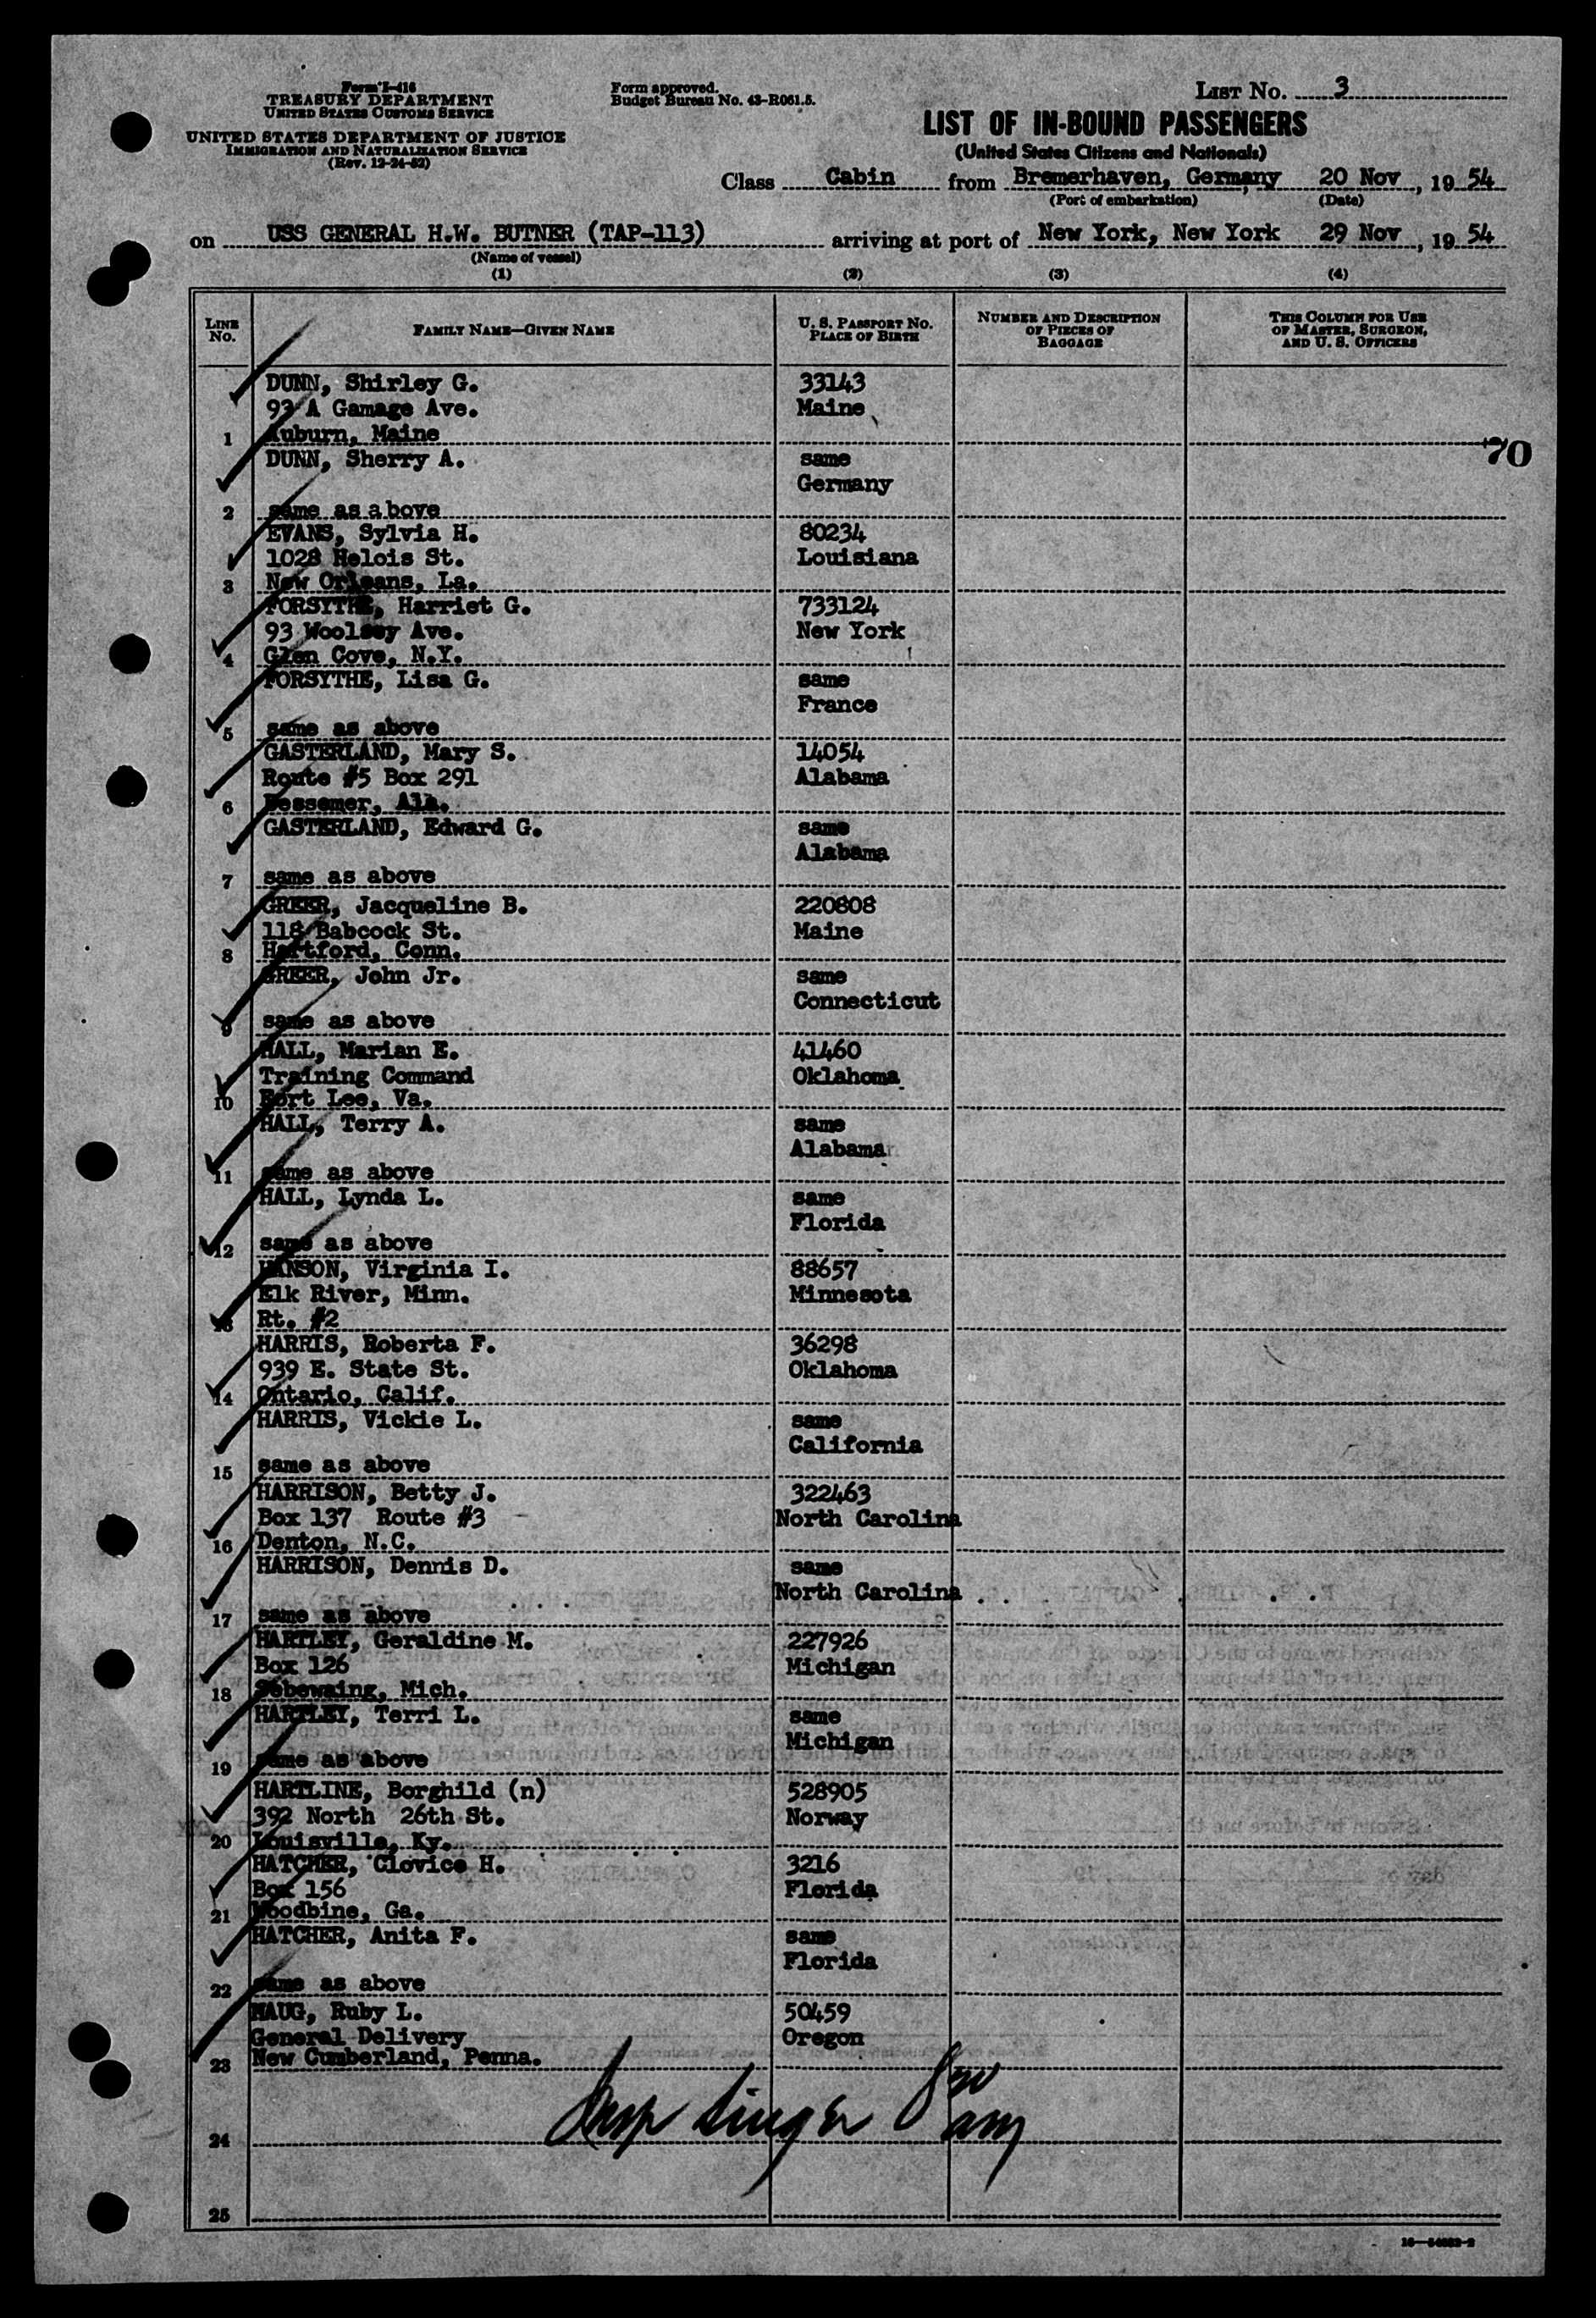 Form I-416
TREASURY DEPARTMENT
UNITED STATES CUSTOMS SERVICE
UNITED STATES DEPARTMENT OF JUSTICE
IMMIGRATION AND NATURALIZATION SERVICE
(Rev. 12-24-52)
Form approved.
Budget Bureau No. 43-R061.5.
LIST NO. 3
LIST OF IN-BOUND PASSENGERS
(United States Citizens and Nationals)
Class Cabin from Bremerhaven, Germany 20 Nov, 19 54
(Port of embarkation) (Date)
on USS GENERAL H.W. BUTNER (TAP-113) arriving at port of New York, New York 29 Nov, 19 54
(Name of vessel)
(1) (2) (3) (4)
LINE NO. FAMILY NAME—GIVEN NAME U. S. PASSPORT NO. PLACE OF BIRTH NUMBER AND DESCRIPTION OF PIECES OF BAGGAGE THIS COLUMN FOR USE OF MASTER, SURGEON, AND U. S. OFFICERS
DUNN, Shirley G. 33143
93 A Gamage Ave. Maine
1 Auburn, Maine
70
DUNN, Sherry A. same
Germany
2 same as above
EVANS, Sylvia H. 80234
1028 Helois St. Louisiana
3 New Orleans, La.
FORSYTHE, Harriet G. 733124
93 Woolsey Ave. New York
4 Glen Cove, N.Y.
FORSYTHE, Lisa G. same
France
5 same as above
GASTERLAND, Mary S. 14054
Route #5 Box 291 Alabama
6 Bessemer, Ala.
GASTERLAND, Edward G. same
Alabama
7 same as above
GREER, Jacqueline B. 220808
118 Babcock St. Maine
8 Hartford, Conn.
GREER, John Jr. same
Connecticut
9 same as above
HALL, Marian E. 41460
Training Command Oklahoma
10 Fort Lee, Va.
HALL, Terry A. same
Alabama
11 same as above
HALL, Lynda L. same
Florida
12 same as above
HANSON, Virginia I. 88657
Elk River, Minn. Minnesota
13 Rt. #2
HARRIS, Roberta F. 36298
939 E. State St. Oklahoma
14 Ontario, Calif.
HARRIS, Vickie L. same
California
15 same as above
HARRISON, Betty J. 322463
Box 137 Route #3 North Carolina
16 Denton, N.C.
HARRISON, Dennis D. same
North Carolina
17 same as above
HARTLEY, Geraldine M. 227926
Box 126 Michigan
18 Sebewaing, Mich.
HARTLEY, Terri L. same
Michigan
19 same as above
HARTLINE, Borghild (n) 528905
392 North 26th St. Norway
20 Louisville, Ky.
HATCHER, Clovice H. 3216
Box 156 Florida
21 Woodbine, Ga.
HATCHER, Anita F. same
Florida
22 same as above
HAUG, Ruby L. 50459
General Delivery Oregon
23 New Cumberland, Penna.
Insp Singer 8 30 am
24
25